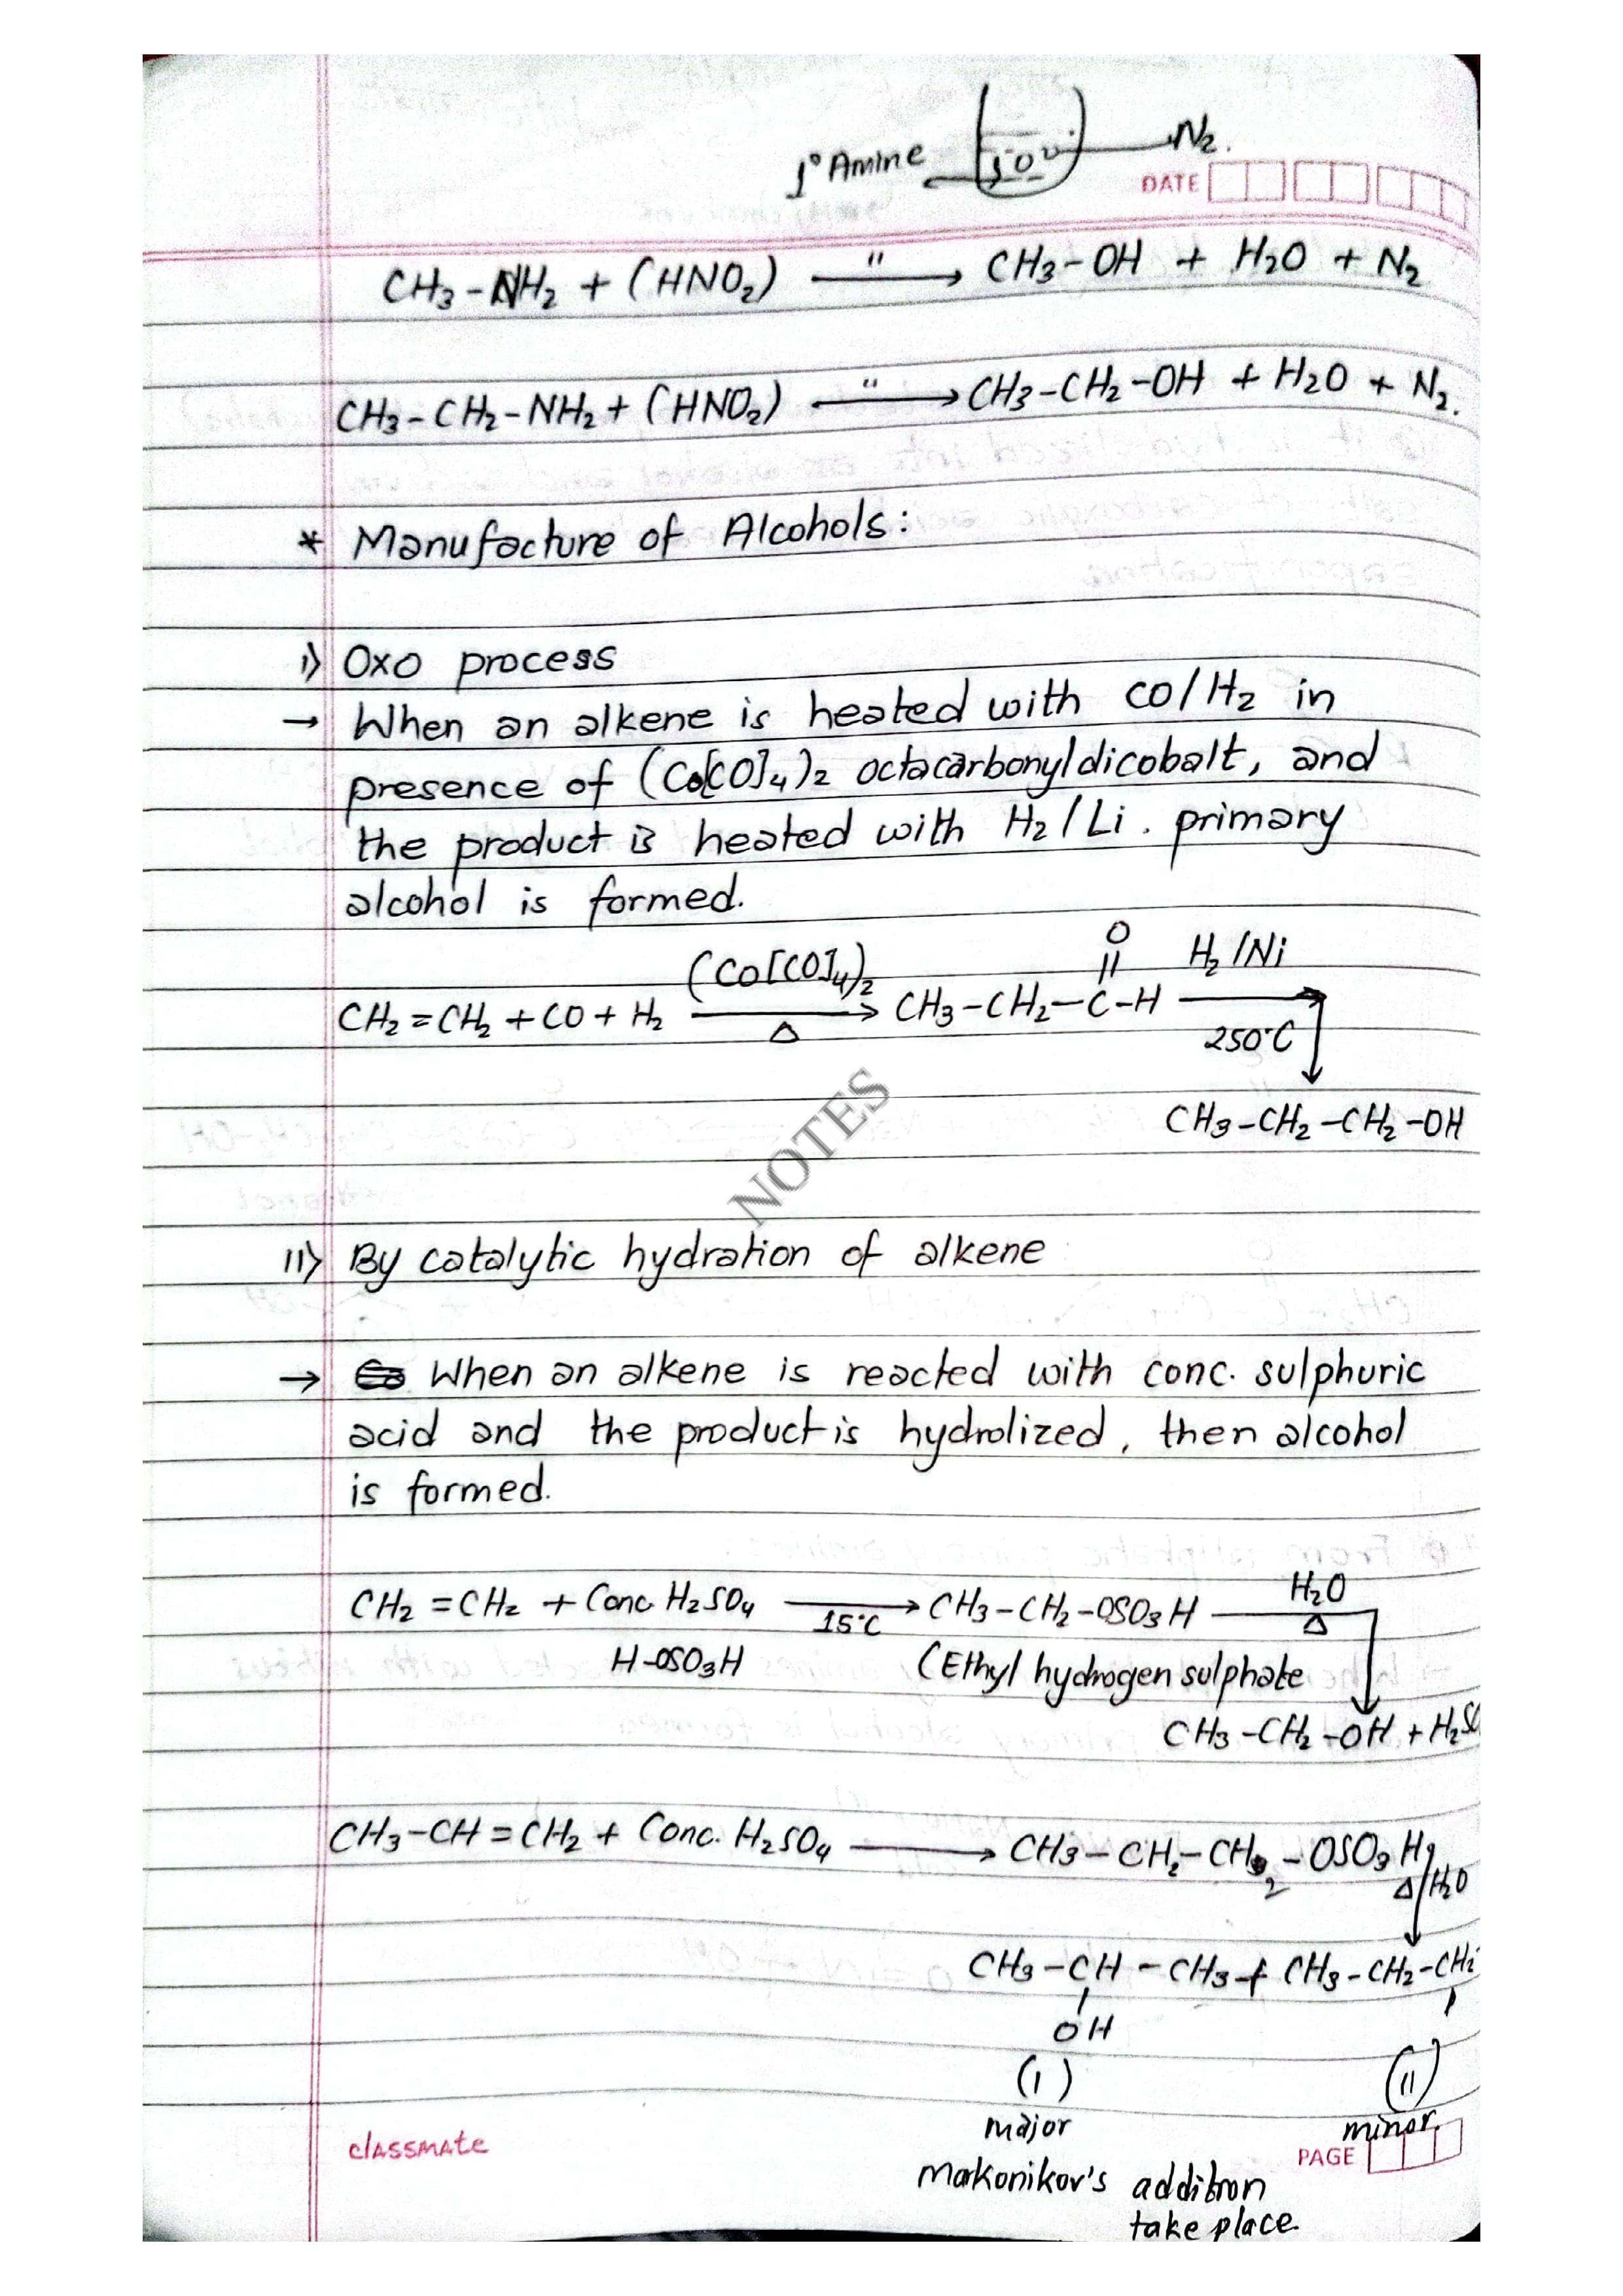 1° Amine
N₂.
DATE
CH₃-NH₂ + (HNO₂) —"→ CH₃-OH + H₂O + N₂
CH₃-CH₂-NH₂ + (HNO₂) —"→ CH₃-CH₂-OH + H₂O + N₂.
* Manufacture of Alcohols:
i) Oxo process
→ When an alkene is heated with CO/H₂ in
presence of (Co[CO]₄)₂ octacarbonyldicobalt, and
the product is heated with H₂/Li. primary
alcohol is formed.
(Co[CO]₄)₂ O H₂/Ni
CH₂=CH₂ + CO + H₂ → CH₃-CH₂-C-H →
Δ 250°C
CH₃-CH₂-CH₂-OH
NOTES
II) By catalytic hydration of alkene
→ When an alkene is reacted with conc. sulphuric
acid and the product is hydrolized, then alcohol
is formed.
H₂O
CH₂=CH₂ + Conc. H₂SO₄ → CH₃-CH₂-OSO₃H →
15°C Δ
H-OSO₃H (Ethyl hydrogen sulphate
CH₃-CH₂-OH + H₂SO
CH₃-CH=CH₂ + Conc. H₂SO₄ → CH₃-CH₂-CH₂-OSO₃H
Δ/H₂O
CH₃-CH-CH₃ + CH₃-CH₂-CH₂
OH
(I) (II)
major minor.
classmate PAGE
Makonikov's addition
take place.